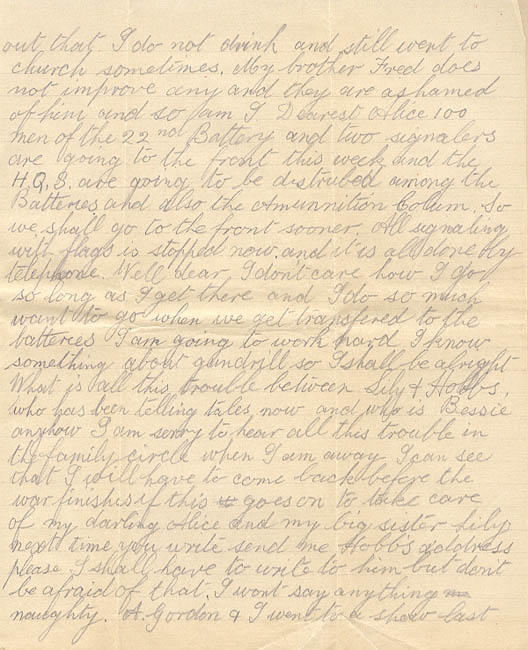 out that I do not drink and still went to
church sometimes. My brother Fred does
not improve any and they are ashamed
of him and so am I. Dearest Alice 100
men of the 22nd Battery and two signalers
are going to the front this week and the
H.Q.S. are going to be distrubed among the
Batteries and also the Amunnition Colum. So
we shall go to the front sooner. All signaling
with flags is stopped now, and it is all done by
telephone. Well dear, I dont care how I go
so long as I get there and I do so much
want to go when we get transfered to the
batterees I am going to work hard I know
something about gundrill so I shall be alright
What is all this trouble between Lily & Hobbs,
who has been telling tales now and who is Bessie
anyhow I am sorry to hear all this trouble in
the family circle when I am away I can see
that I will have to come back before the
war finishes if this goes on to take care
of my darling Alice and my big sister Lily
next time you write send me Hobb's address
please I shall have to write to him but dont
be afraid of that, I wont say anything
naughty. A. Gordon & I went to a show last